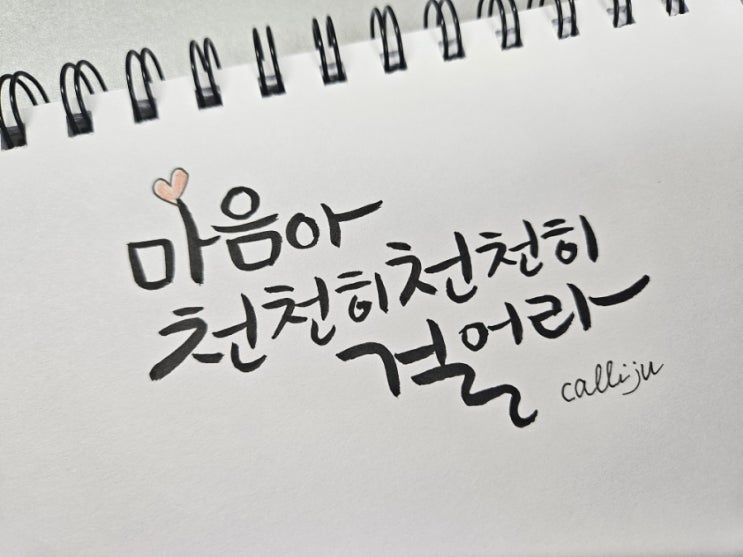 마음아
천천히 천천히
걸어라
calliju